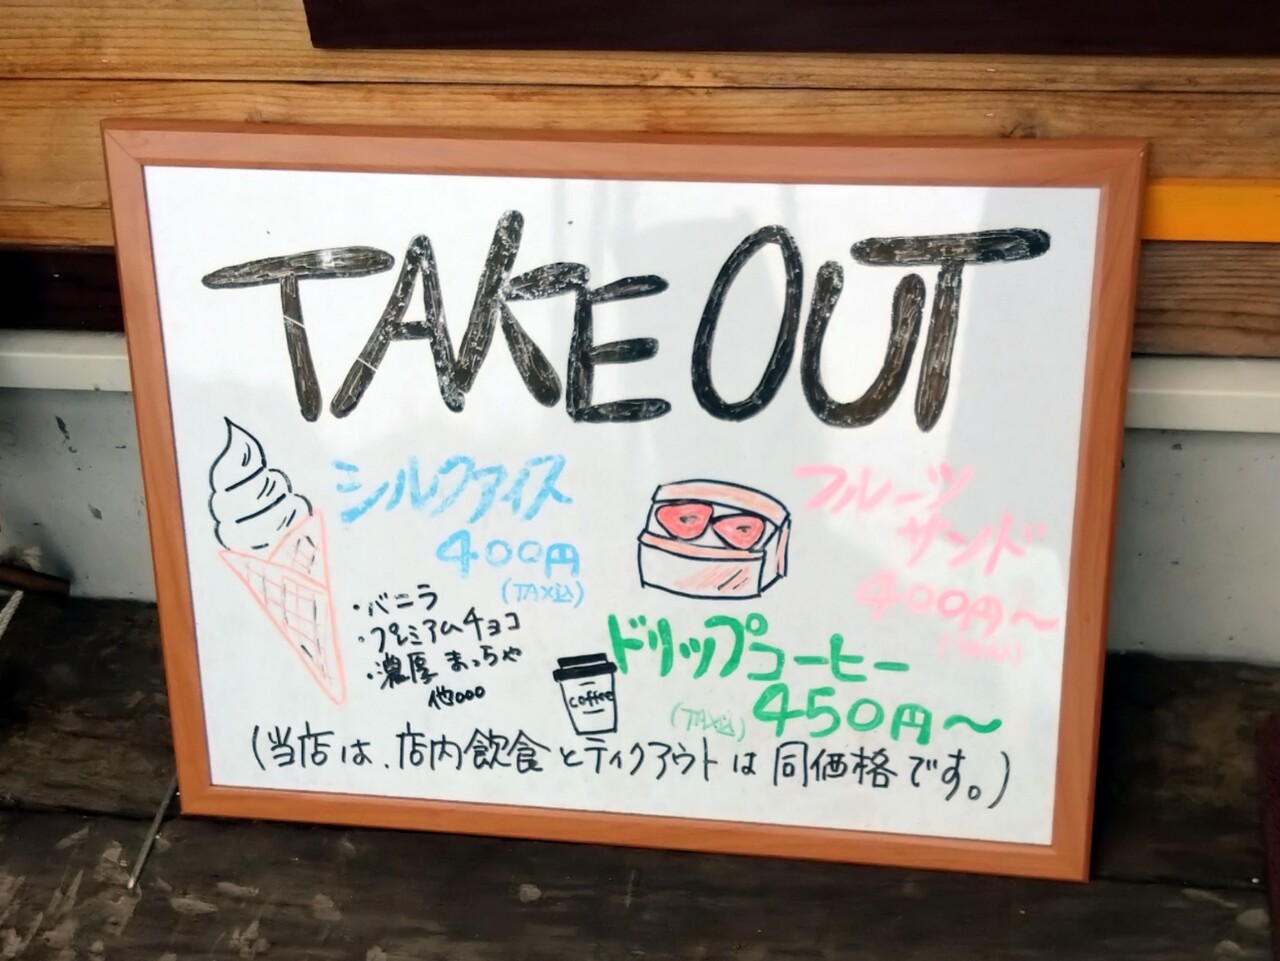 TAKE OUT
シルクアイス
400円
(TAX込)
・バニラ
・プレミアムチョコ
・濃厚まっちゃ
他ooo
フルーツ
サンド
400円〜
(TAX込)
coffee
ドリップコーヒー
(TAX込) 450円〜
(当店は、店内飲食とティクアウトは同価格です。)